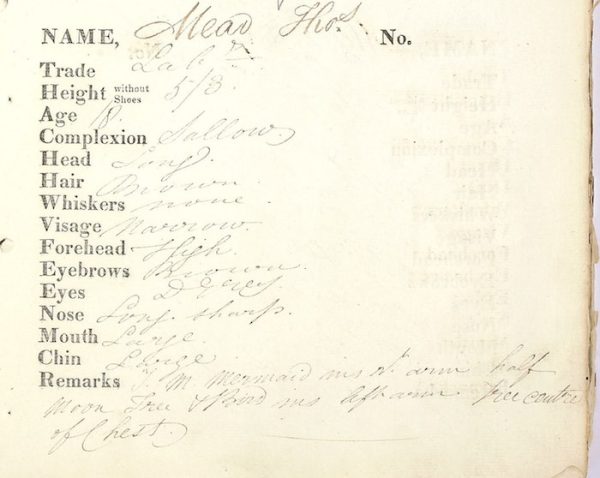 NAME, Mead Thos. No.
Trade Labr
Height without Shoes 5/3
Age 18.
Complexion Sallow
Head Long
Hair Brown
Whiskers none
Visage Narrow
Forehead High
Eyebrows Brown
Eyes D Grey
Nose Long sharp.
Mouth Large
Chin Large
Remarks T. M Mermaid ins rt. arm half
Moon Tree & Bird ins left arm Tree centre
of Chest